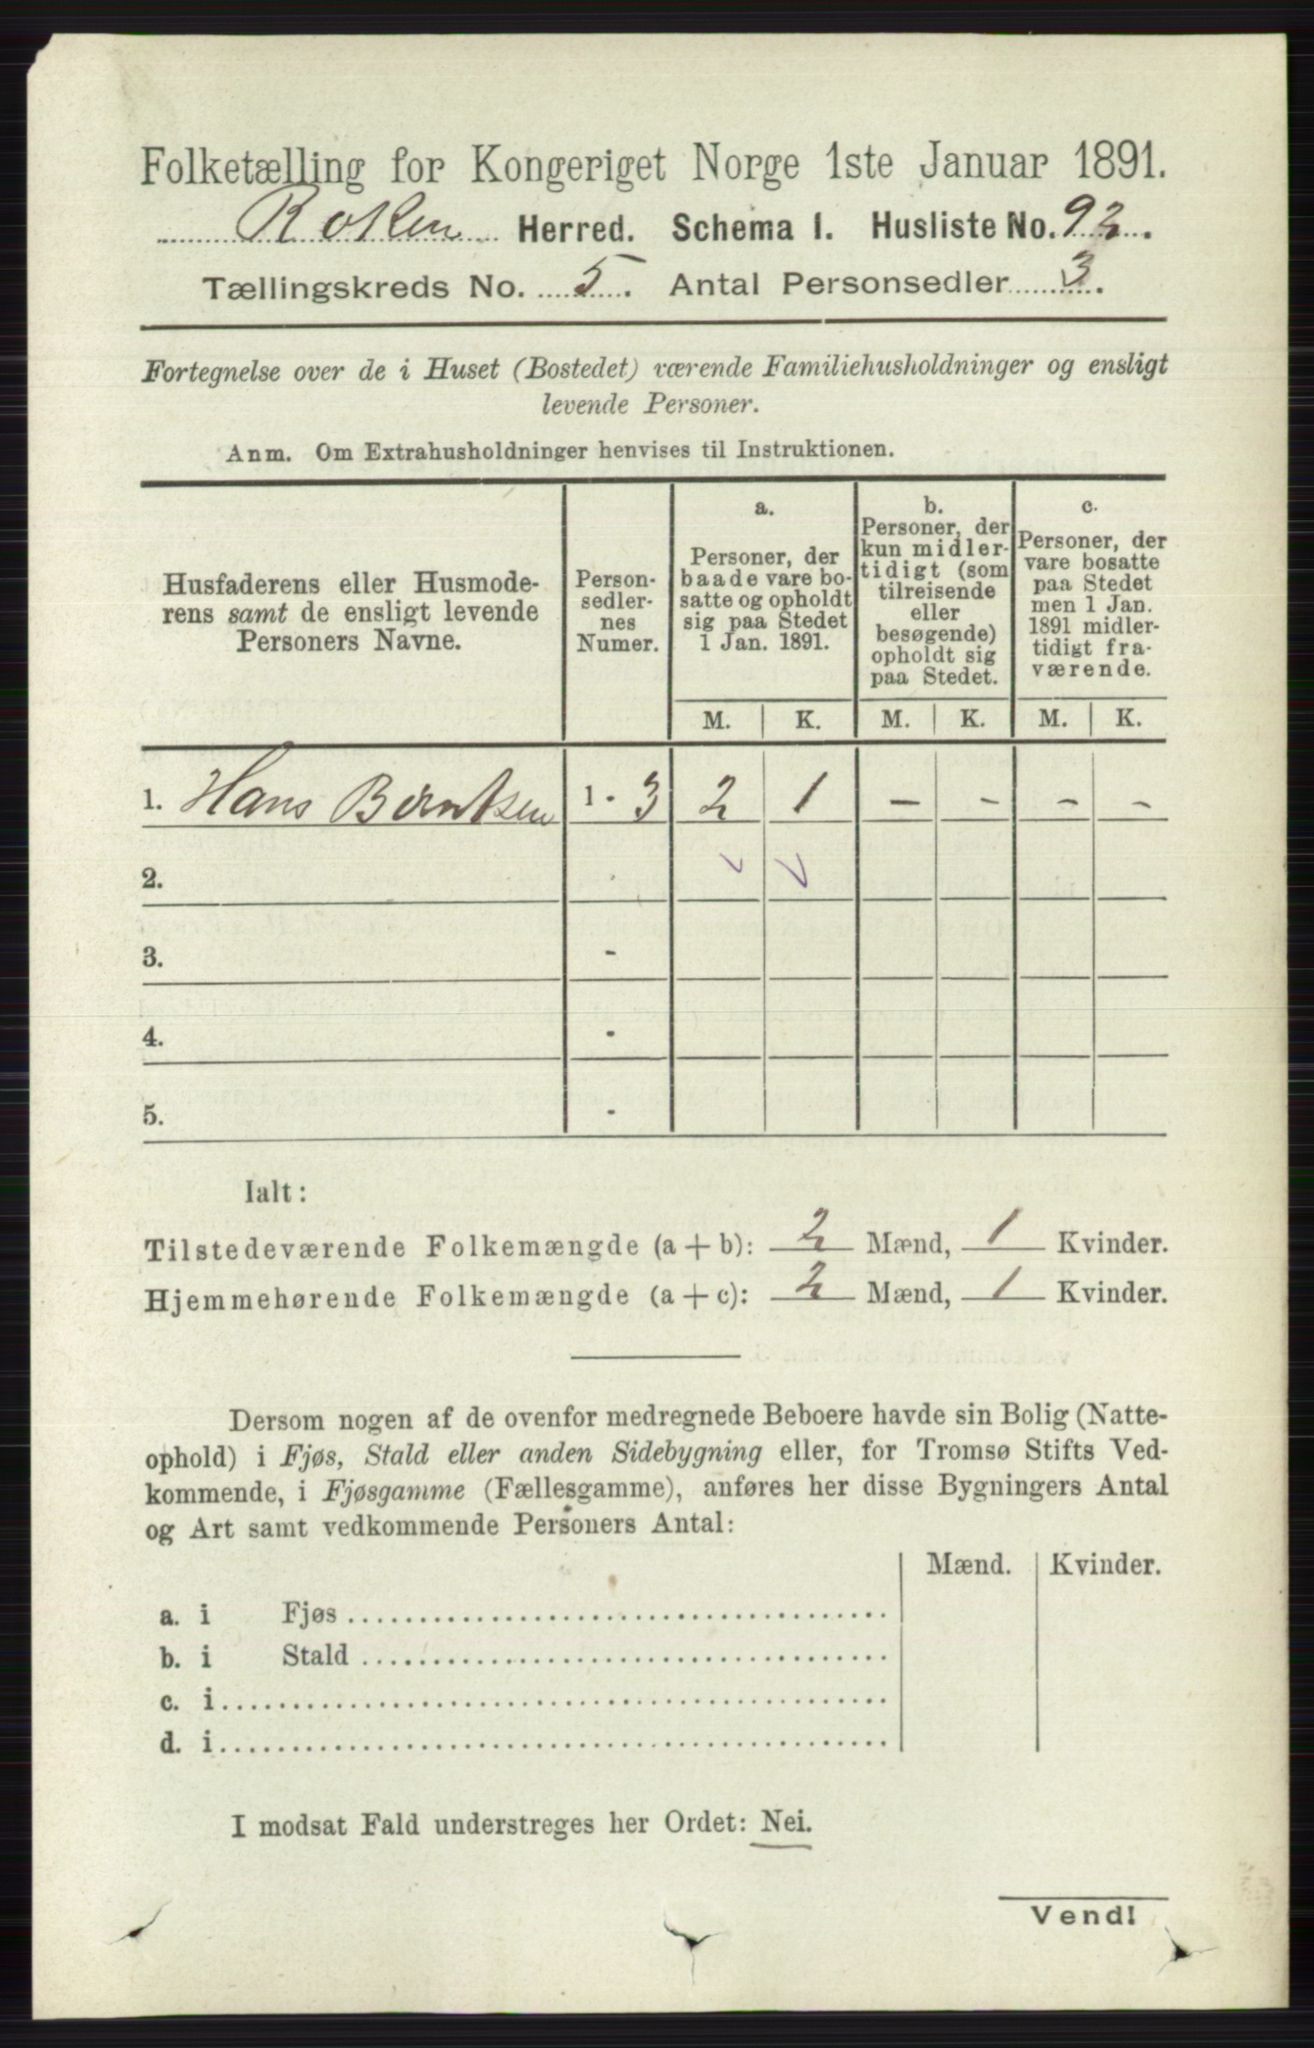 Folketælling for Kongeriget Norge 1ste Januar 1891.
Röken Herred. Schema I. Husliste No. 92.
Tællingskreds No. 5. Antal Personsedler 3.
Fortegnelse over de i Huset (Bostedet) værende Familiehusholdninger og ensligt
levende Personer.
Anm. Om Extrahusholdninger henvises til Instruktionen.
Husfaderens eller Husmode-
rens samt de ensligt levende
Personers Navne.
Person-
sedler-
nes
Numer.
a.
Personer, der
baade vare bo-
satte og opholdt
sig paa Stedet
1 Jan. 1891.
b.
Personer, der
kun midler-
tidigt (som
tilreisende
eller
besøgende)
opholdt sig
paa Stedet.
c.
Personer, der
vare bosatte
paa Stedet
men 1 Jan.
1891 midler-
tidigt fra-
værende.
M. K. M. K. M. K.
1. Hans Berntsen 1 - 3 2 1 - - - -
2.
3. -
4. -
5. -
Ialt:
Tilstedeværende Folkemængde (a + b): 2 Mænd, 1 Kvinder.
Hjemmehørende Folkemængde (a + c): 2 Mænd, 1 Kvinder.
Dersom nogen af de ovenfor medregnede Beboere havde sin Bolig (Natte-
ophold) i Fjøs, Stald eller anden Sidebygning eller, for Tromsø Stifts Ved-
kommende, i Fjøsgamme (Fællesgamme), anføres her disse Bygningers Antal
og Art samt vedkommende Personers Antal:
Mænd. Kvinder.
a. i Fjøs
b. i Stald
c. i
d. i
I modsat Fald understreges her Ordet: Nei.
Vend!